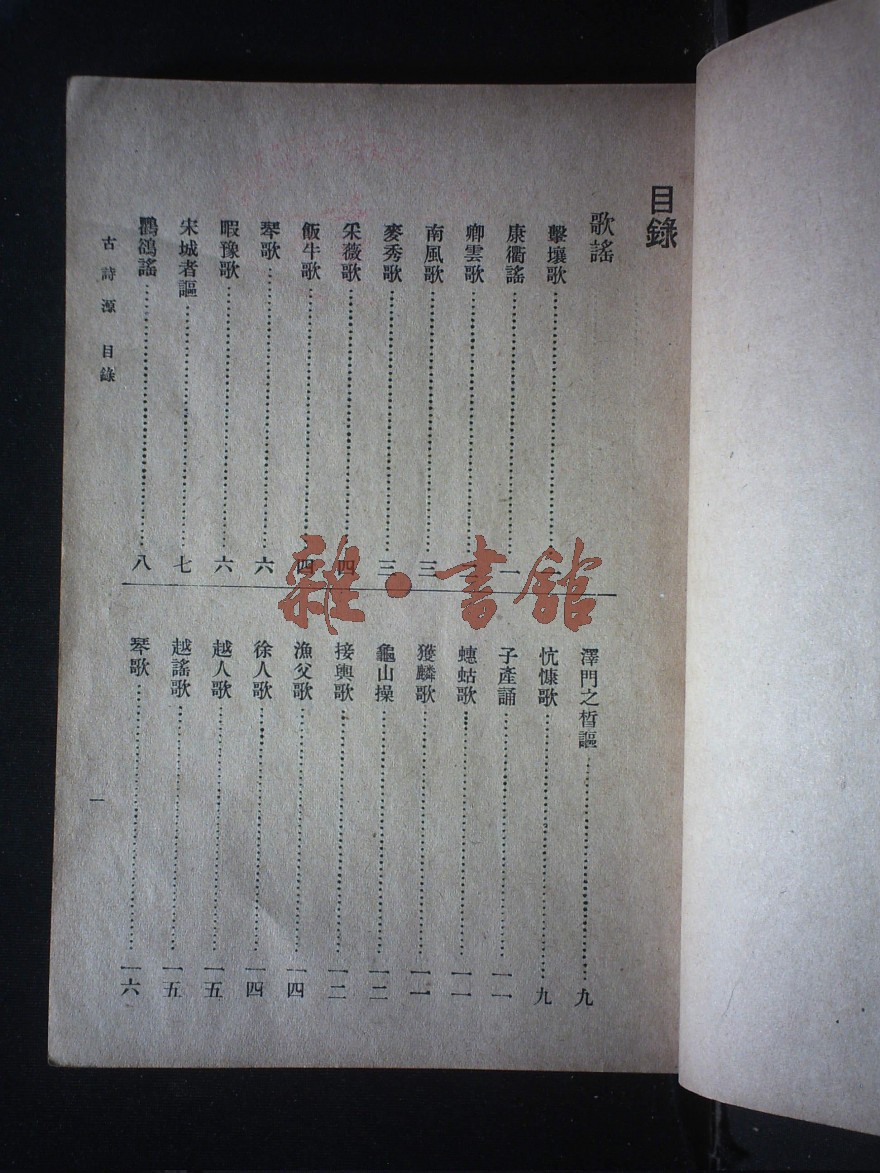 目錄
歌謠
擊壤歌……
康衢謠……一
卿雲歌……
南風歌……三
麥秀歌……三
采薇歌……四
飯牛歌……四
琴歌……六
暇豫歌……六
宋城者謳……七
鸜鵒謠……八
澤門之晳謳……九
忼慷歌……九
子產誦……一一
蟪蛄歌……一一
獲麟歌……一一
龜山操……一二
接輿歌……一二
漁父歌……一四
徐人歌……一四
越人歌……一五
越謠歌……一五
琴歌……一六
古詩源 目錄
一
雜·書館